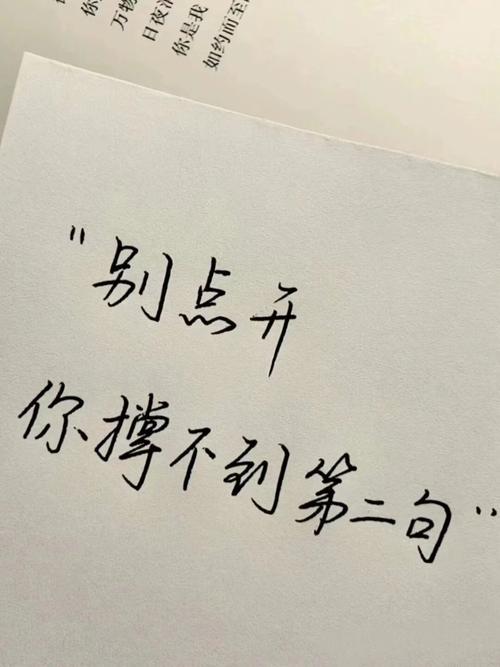 万物
日夜
你是我
如约而至
"别点开
你撑不到第二句"